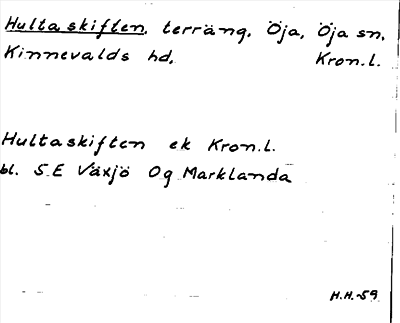 Hultaskiften, terräng, Öja, Öja sn,
Kinnevalds hd, Kron.l.
Hultaskiften ek Kron.l.
bl. 5 E Växjö 0g Marklanda
H.H.-59